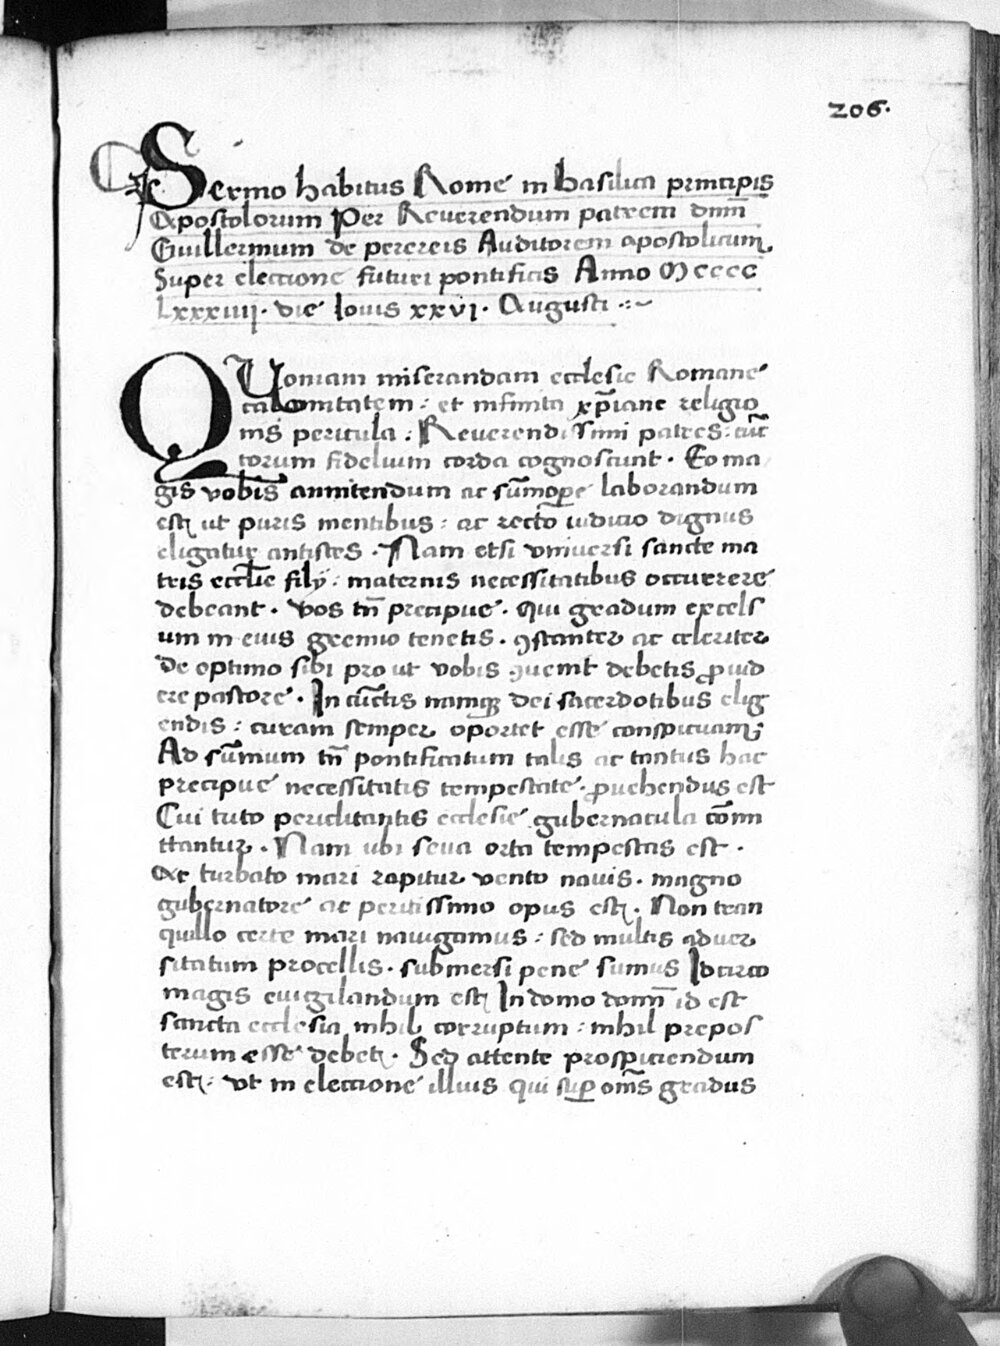 206.
Sermo habitus Rome in basilica principis
Apostolorum Per Reuerendum patrem dnm̄
Guillermum de perereis Auditorem apostolicum.
Super electione futuri pontificis Anno Mcccc
Lxxxiiij. die Iouis xxvj. Augusti :~
QUoniam miserandam ecclesie Romane
calamitatem : et infinita xp̄iane religio
nis pericula : Reuerendissimi patres : cūc
torum fidelium corda cognoscunt . Eo ma
gis vobis annitendum ac sūmope laborandum
est ut puris mentibus : ac recto iudicio dignus
eligatur antistes . Nam etsi vniuersi sancte ma
tris eccl̄ie filij : maternis necessitatibus occurrere
debeant . vos tn̄ precipue . qui gradum excels
um in eius gremio tenetis . ꝯstanter ac celeriter
De optimo sibi pro ut vobis ꝯuenit debetis ꝓuid
ere pastore . In cūctis namqꝫ dei sacerdotibus elig
endis : curam semper oportet esse conspicuam ;
Ad sūmum tn̄ pontificatum talis ac tantus hac
precipue necessitatis tempestate . ꝓuehendus est
Cui tuto periclitantis ecclesie gubernacula cōmi
ttantur . Nam ubi seua orta tempestas est .
Ac turbato mari rapitur vento nauis . magno
gubernatore ac peritissimo opus est . Non tran
quillo certe mari nauigamus : sed multis aduer
sitatum procellis . submersi pene sumus Idcirco
magis euigilandum est In domo domī id est
sancta ecclesia nihil corruptum : nihil prepos
terum esse debet . Sed attente prospiciendum
est : vt in electione illius qui suꝑ om̄s gradus